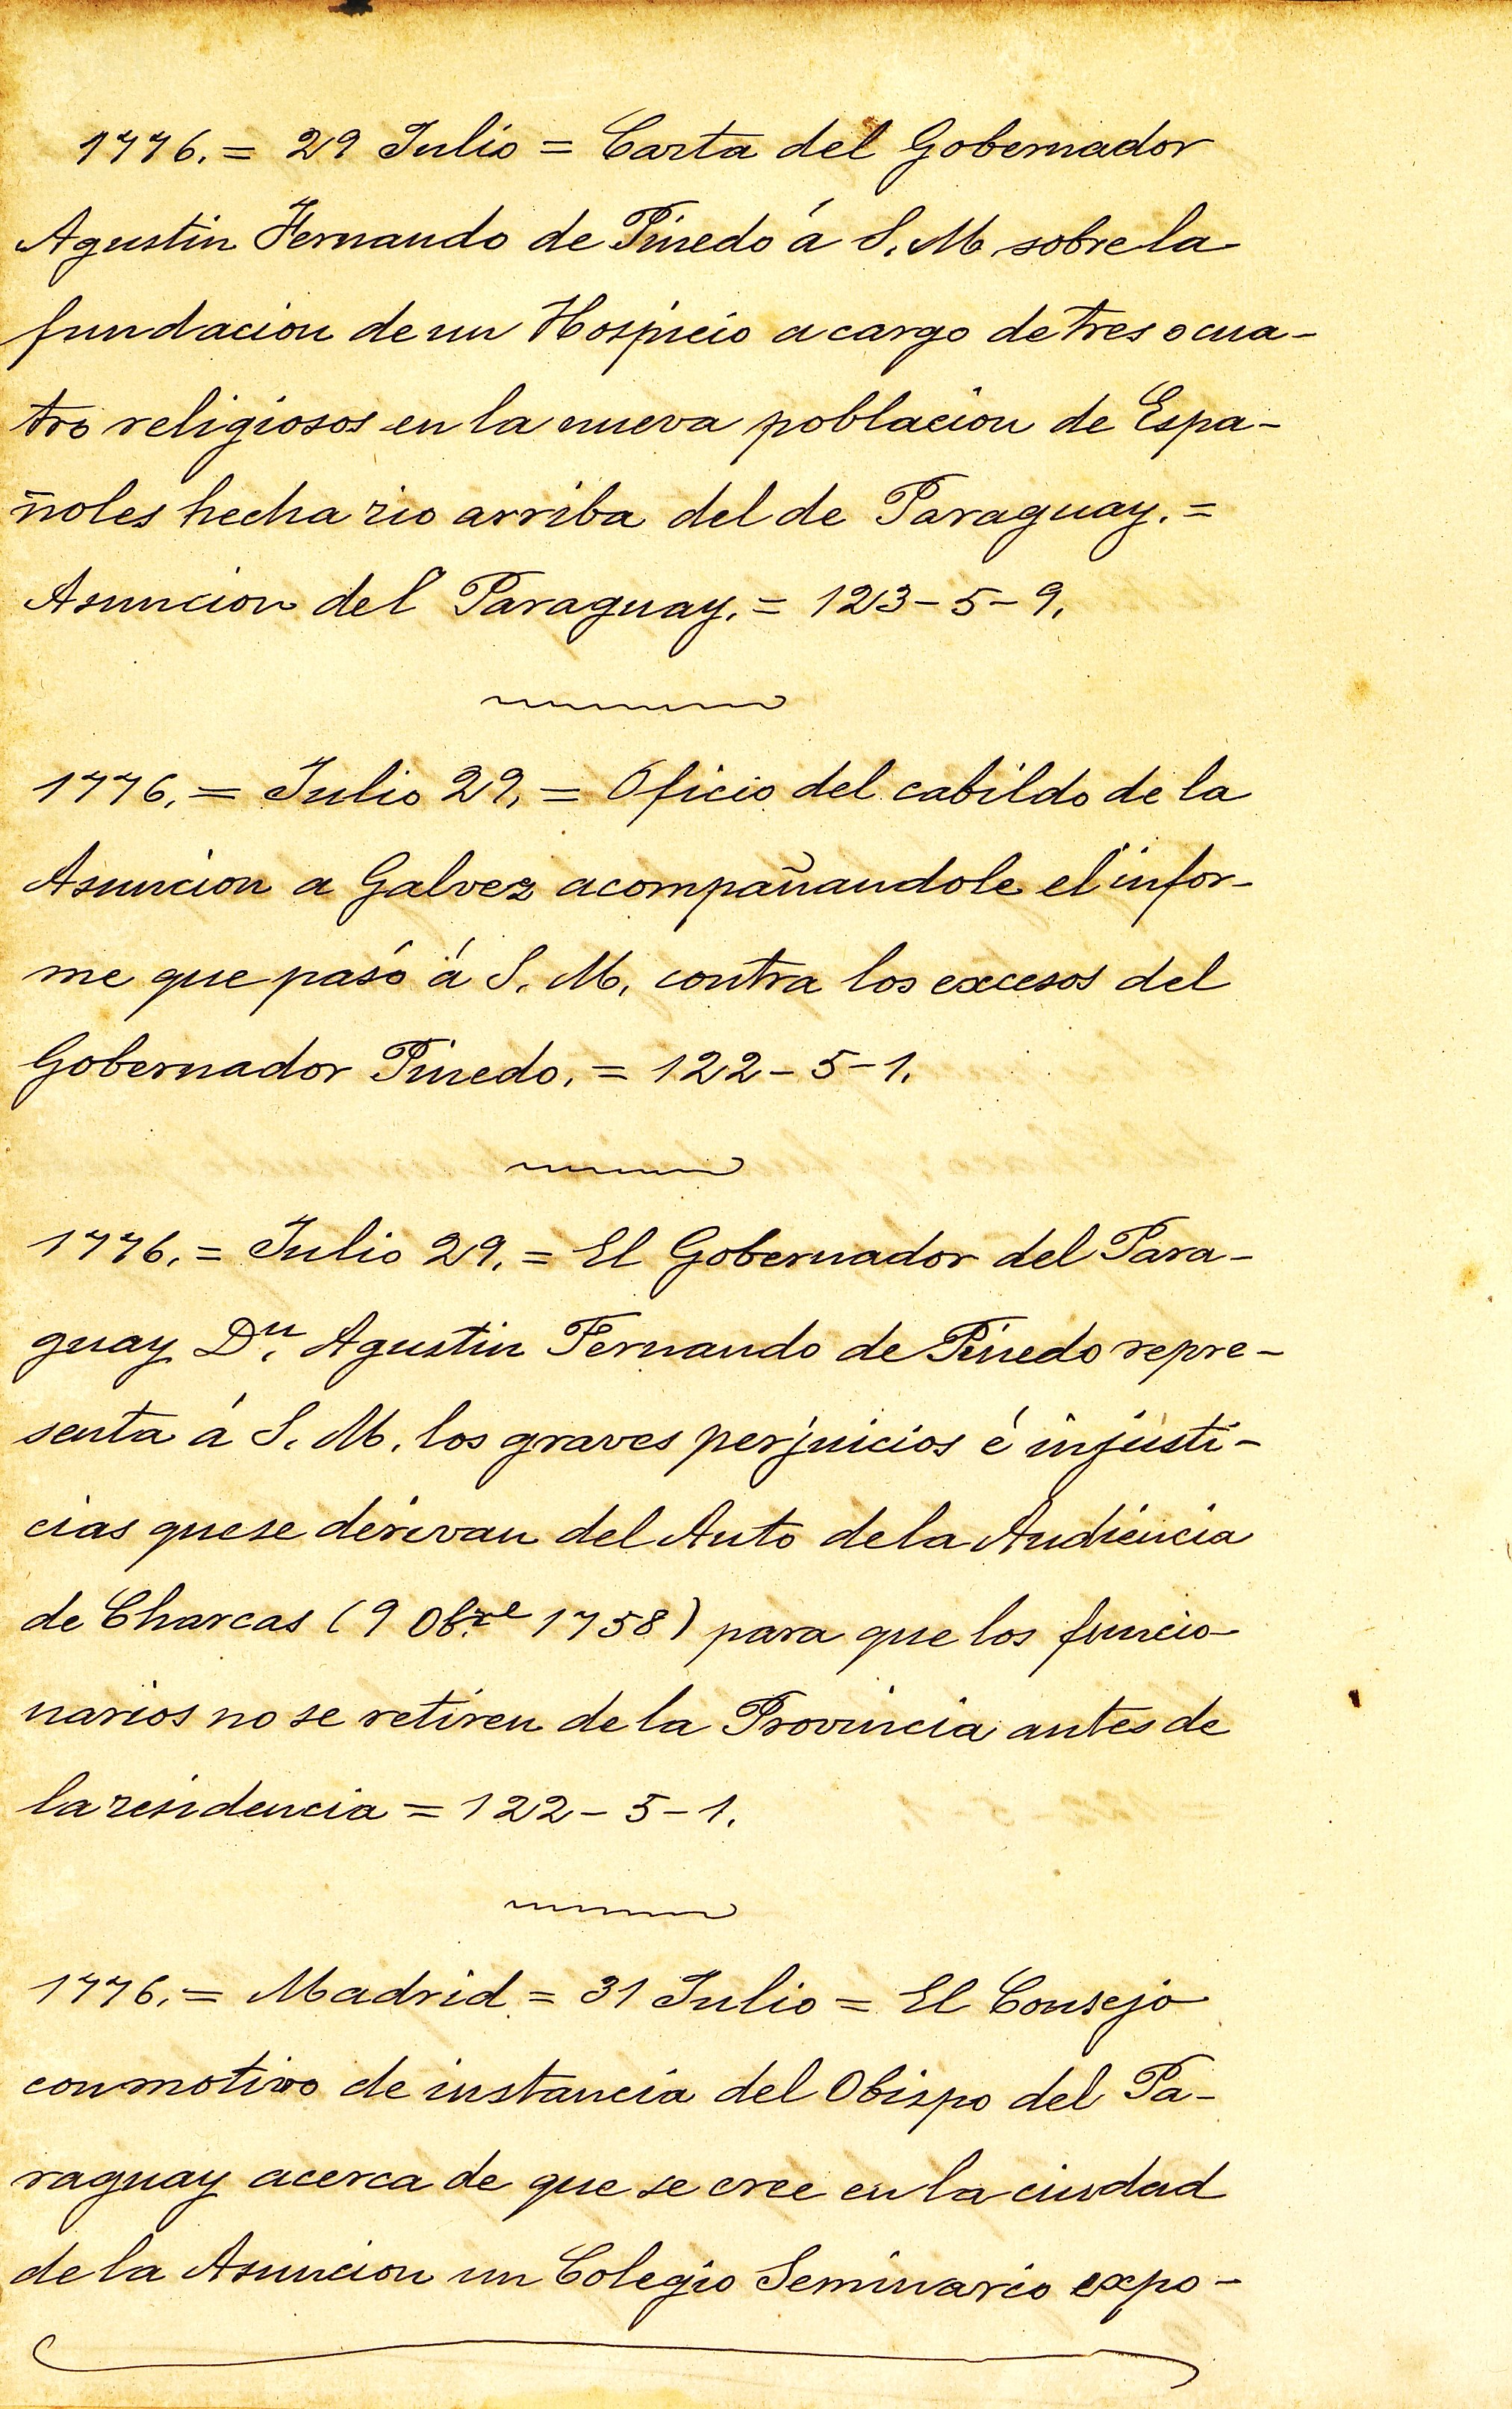 1776. = 29 Julio = Carta del Gobernador
Agustin Fernando de Pinedo á S. M. sobre la
fundacion de un Hospicio a cargo de tres o cua-
tro religiosos en la nueva poblacion de Espa-
ñoles hecha rio arriba del de Paraguay. =
Asuncion del Paraguay. = 123-5-9.
1776. = Julio 29. = Oficio del cabildo de la
Asuncion a Galvez acompañandole el infor-
me que pasó á S. M. contra los excesos del
Gobernador Pinedo. = 122-5-1.
1776. = Julio 29. = El Gobernador del Para-
guay Dn. Agustin Fernando de Pinedo repre-
senta á S. M. los graves perjuicios é injusti-
cias que se derivan del Auto de la Audiencia
de Charcas (9 Obre 1758) para que los funcio-
narios no se retiren de la Provincia antes de
la residencia = 122-5-1.
1776. = Madrid = 31 Julio = El Consejo
con motivo de instancia del Obispo del Pa-
raguay acerca de que se cree en la ciudad
de la Asuncion un Colegio Seminario expo-